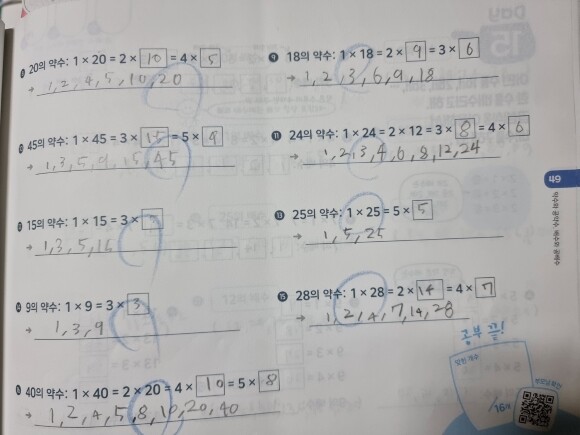 Day
15
20의 약수: 1 × 20 = 2 × 10 = 4 × 5
→ 1, 2, 4, 5, 10, 20
45의 약수: 1 × 45 = 3 × 15 = 5 × 9
→ 1, 3, 5, 9, 15, 45
15의 약수: 1 × 15 = 3 ×
→ 1, 3, 5, 15
9의 약수: 1 × 9 = 3 × 3
→ 1, 3, 9
40의 약수: 1 × 40 = 2 × 20 = 4 × 10 = 5 × 8
→ 1, 2, 4, 5, 8, 10, 20, 40
18의 약수: 1 × 18 = 2 × 9 = 3 × 6
→ 1, 2, 3, 6, 9, 18
11 24의 약수: 1 × 24 = 2 × 12 = 3 × 8 = 4 × 6
→ 1, 2, 3, 4, 6, 8, 12, 24
13 25의 약수: 1 × 25 = 5 × 5
→ 1, 5, 25
15 28의 약수: 1 × 28 = 2 × 14 = 4 × 7
→ 1, 2, 4, 7, 14, 28
49
약수와 공약수, 배수와 공배수
공부 끝!
맞힌 개수
/16개